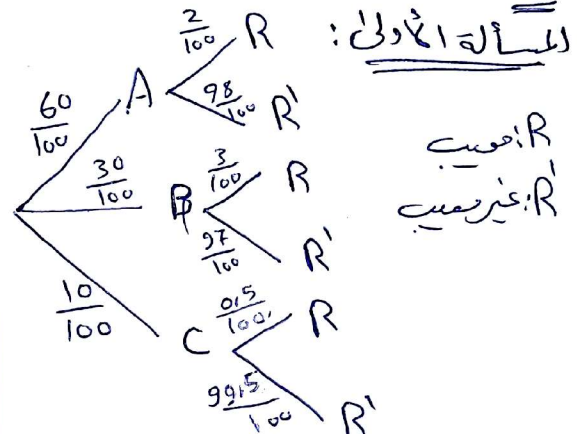 المسألة الأولى:
R: معيب
R': غير معيب
60/100 A 2/100 R
98/100 R'
30/100 B 3/100 R
97/100 R'
10/100 C 0,5/100 R
99,5/100 R'